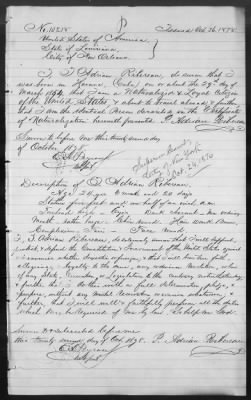 No. 10515 Issued Oct. 26 1878
United States of America,
State of Louisiana,
City of New Orleans.
I, P. Adrian Rekersan, do swear that I
was born in Havana, Cuba, on or about the 29th day of
March 1854, that I am a Naturalized & Loyal Citizen
of the United States & about to travel abroad, & further
that I am the identical Person described in the Certificate
of Naturalization herewith presented. P. Adrian Rekersan
Sworn to before me this twenty second day
of October 1878.
New York
Oct. 24, 1878
Description of P. Adrian Rekersan.
Age: 24 years 6 months and 23 days
Stature five feet and one half of an inch
Forehead high - Eyes: Dark
Mouth rather large - Chin - Hair Dark Brown
Complexion - Fair - Face Round.
I, P. Adrian Rekersan, do solemnly swear that I will support,
protect & defend the Constitution & Government of the United States against
all enemies whether domestic or foreign, & that I will bear true faith,
allegiance & loyalty to the same, any ordinance, Resolution or law
of any State, Convention or Legislature to the contrary notwithstanding,
& further, that I do this with a full determination, pledge, &
purpose, without any mental reservation or evasion whatsoever, &
further, that I will well & faithfully perform all the duties
which may be required of me by law. So help me God.
Sworn to & subscribed before me
this twenty second day of Oct. 1878. P. Adrian Rekersan